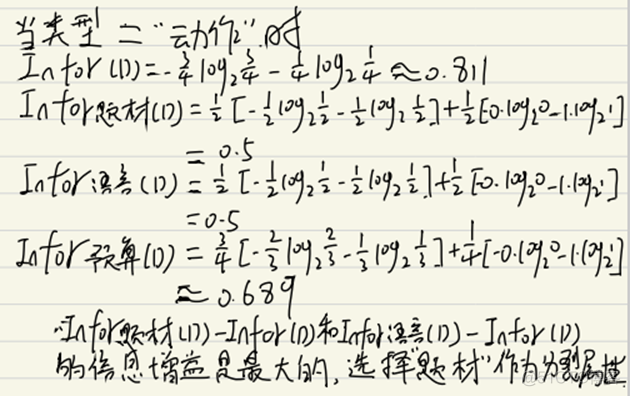 当类型 = “动作”时
Infor(D) = -3/4 log₂ 3/4 - 1/4 log₂ 1/4 ≈ 0.811
Infor题材(D) = 1/2 [-1/2 log₂ 1/2 - 1/2 log₂ 1/2] + 1/2 [0·log₂0 - 1·log₂1]
= 0.5
Infor语言(D) = 1/2 [-1/2 log₂ 1/2 - 1/2 log₂ 1/2] + 1/2 [-0·log₂0 - 1·log₂1]
= 0.5
Infor预算(D) = 3/4 [-2/3 log₂ 2/3 - 1/3 log₂ 1/3] + 1/4 [-0·log₂0 - 1·log₂1]
≈ 0.689
∵Infor题材(D) - Infor(D)和Infor语言(D) - Infor(D)
的信息增益是最大的, 选择“题材”作为分裂属性